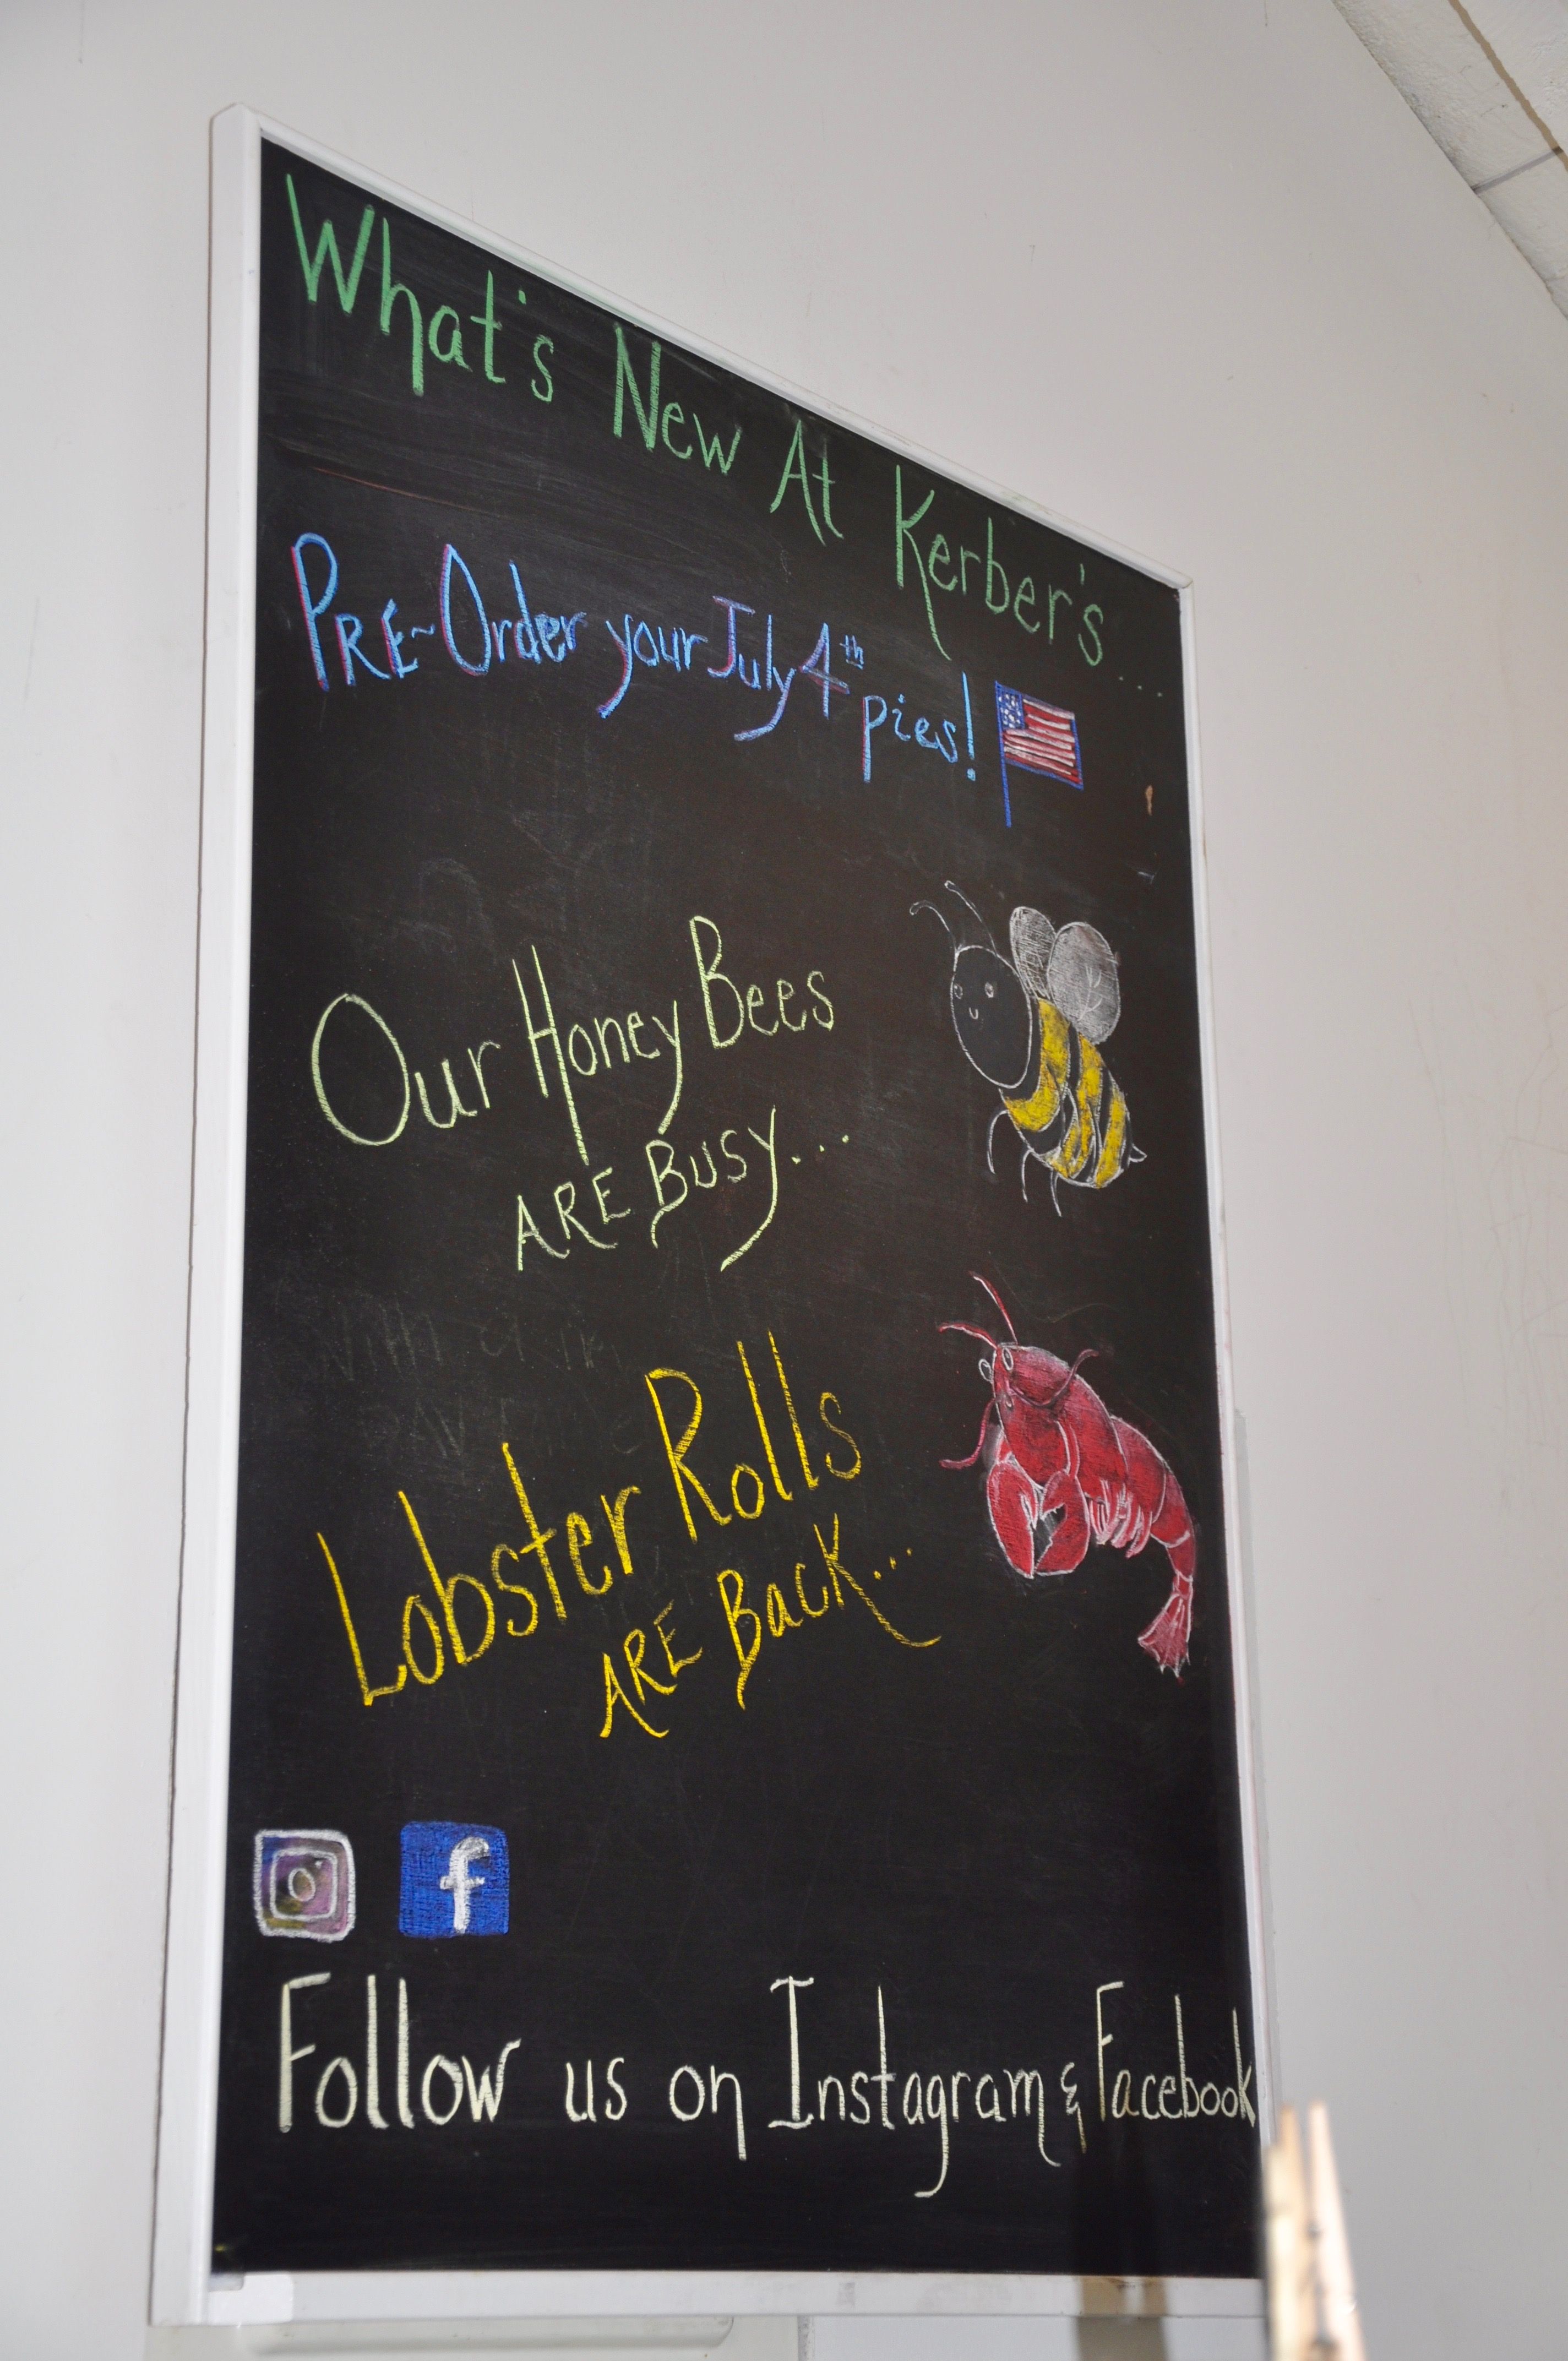 What's New At Kerber's ...
PRE-Order your July 4th pies!
Our Honey Bees
ARE BUSY...
Lobster Rolls
ARE Back...
f
Follow us on Instagram & Facebook